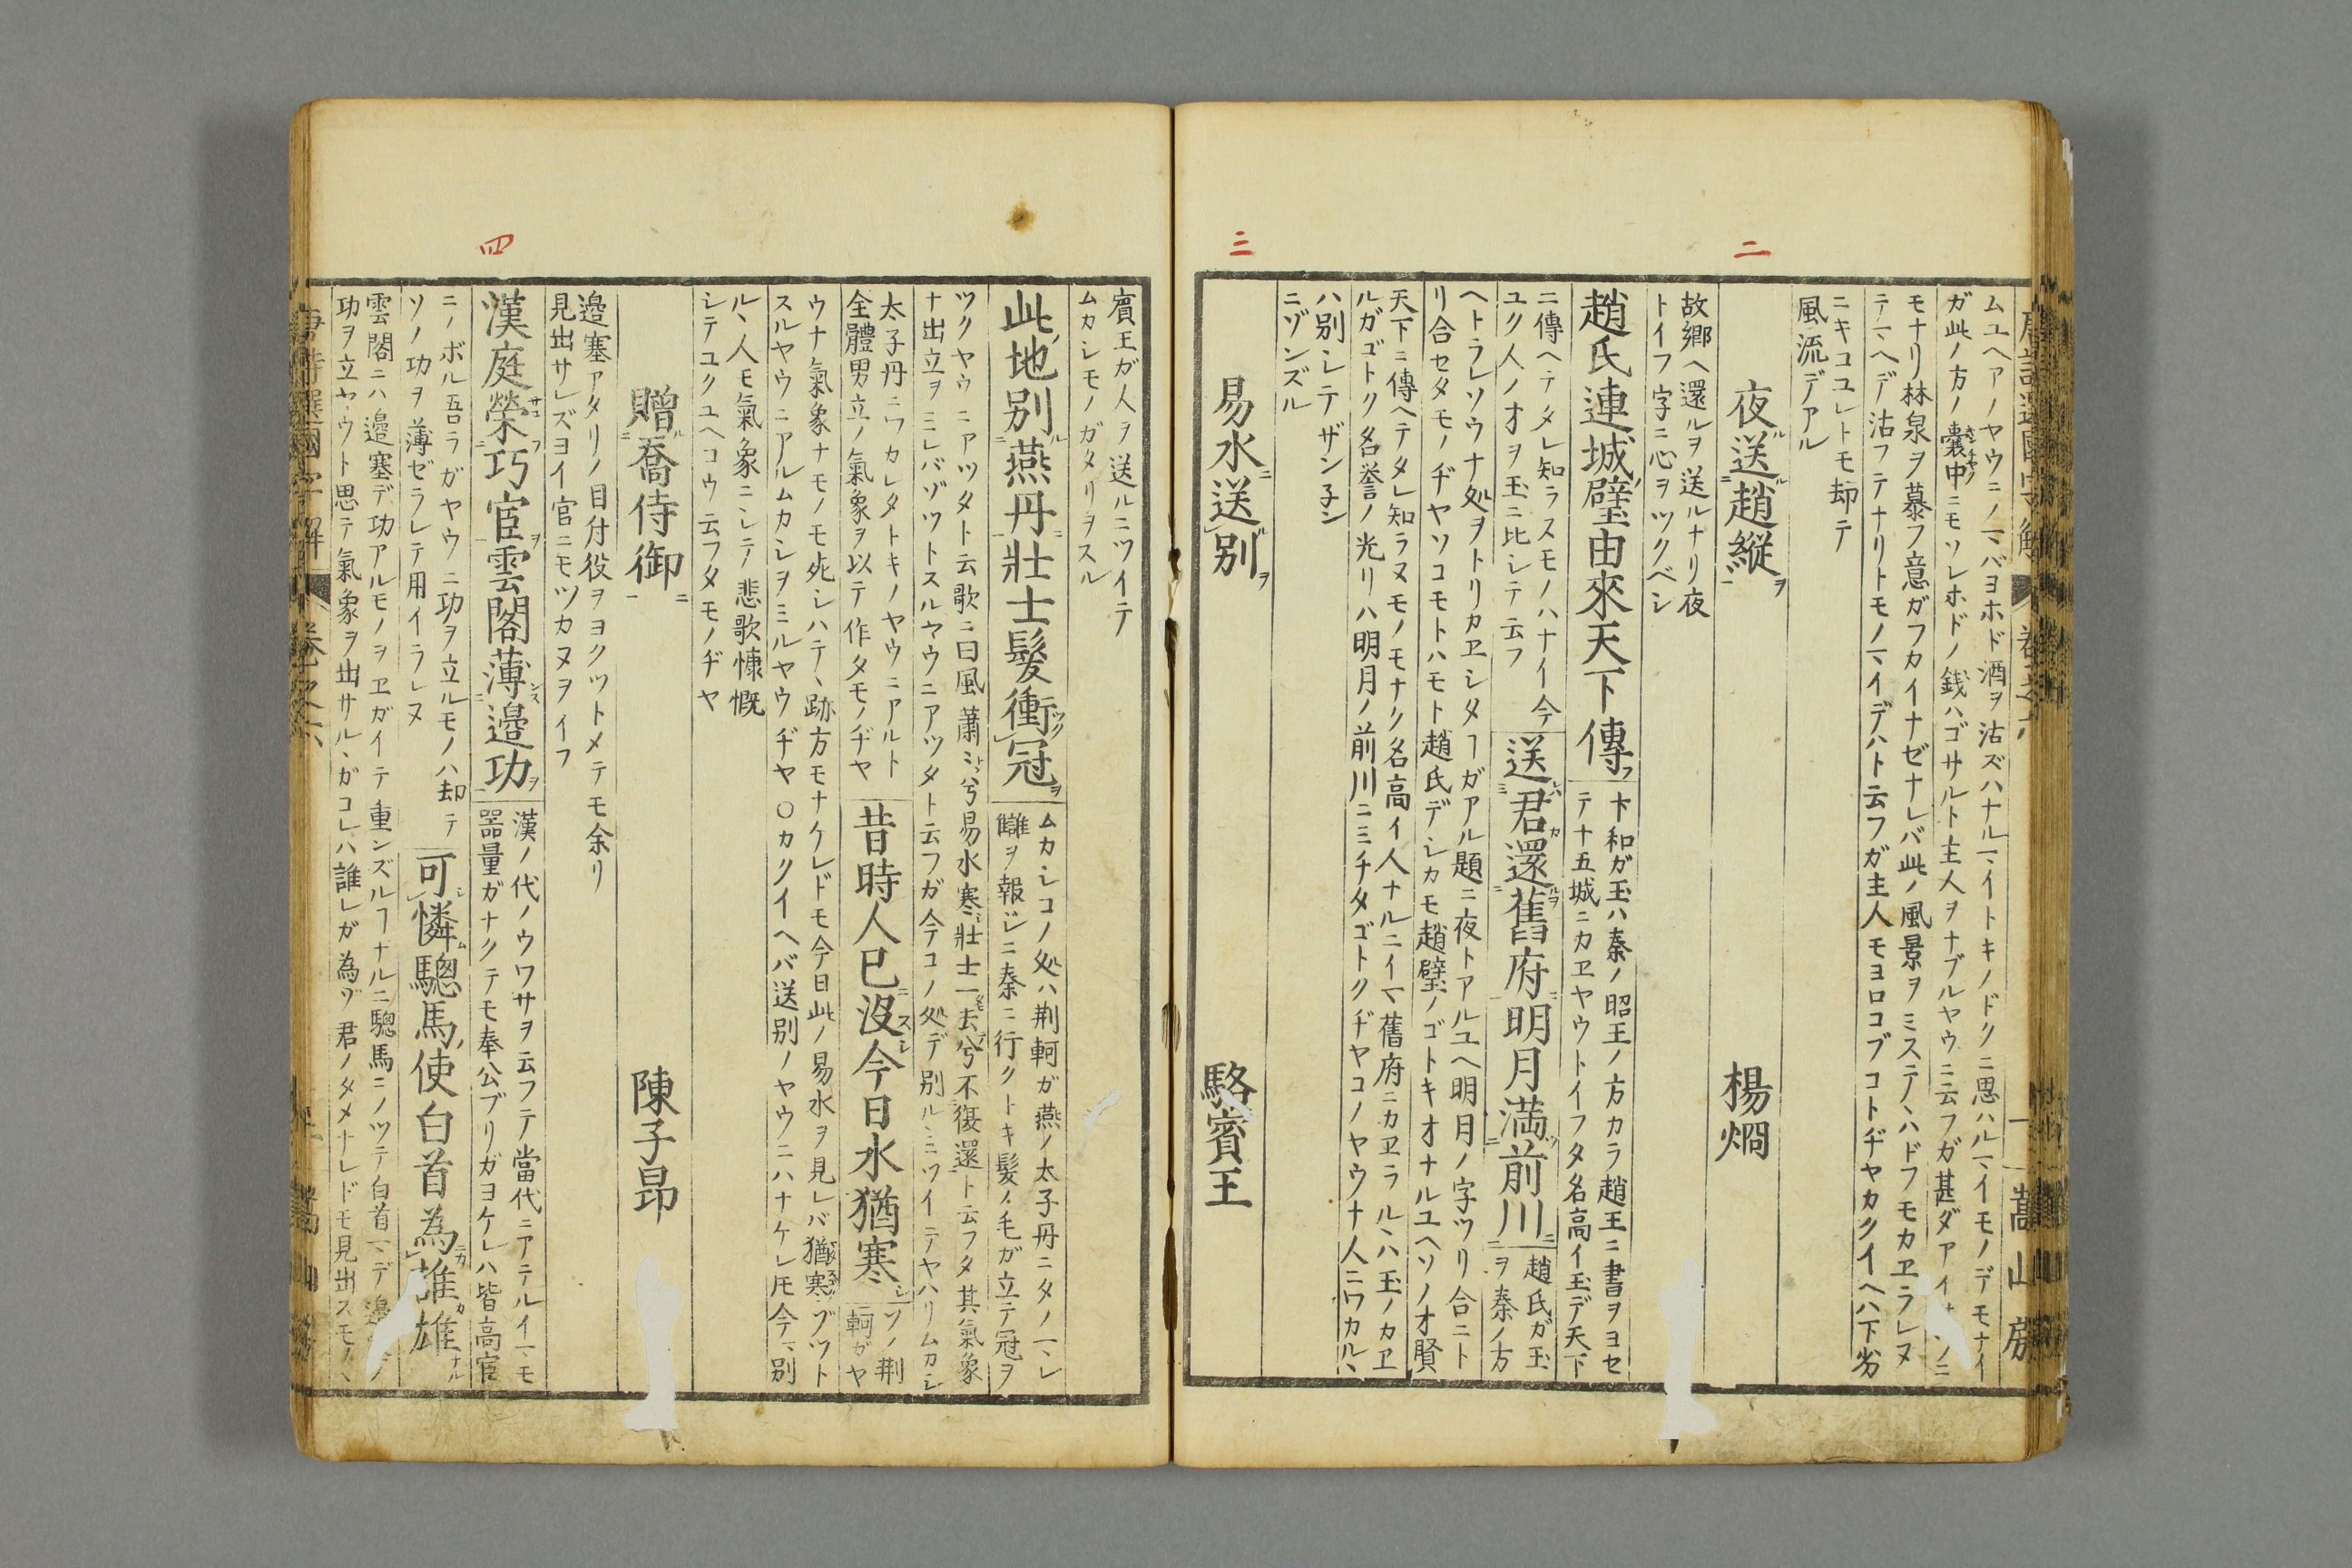 二
三
ムユヘアノヤウニノ𪜈バヨホド酒ヲ沽ズハナル𪜈イトキノドクニ思ハル𪜈イモノデモナイ
ガ此ノ方ノ嚢中ニモソレホドノ銭ハゴサルト主人ヲナブルヤウニ云フガ甚ダアイ
モナリ林泉ヲ慕フ意ガフカイナゼナレバ此ノ風景ヲミステヽハドフモカヱラレヌ
ニキコユレトモ却テ
風流デアル
夜送趙縦
楊烱
故郷ヘ還ルヲ送ルナリ夜
トイフ字ニ心ヲツクベシ
趙氏連城璧由來天下傳
卞和ガ玉ハ秦ノ昭王ノ方カラ趙王ニ書ヲヨセ
テ十五城ニカヱヤウトイフタ名高イ玉デ天下
ニ傳ヘテタレ知ラスモノハナイ今
ユク人ノオヲ玉ニ比シテ云フ
送君還舊府明月満前川
趙氏ガ玉
ヲ秦ノ方
ヘトラレソウナ処ヲトリカヱシタヿガアル題ニ夜トアルユヘ明月ノ字ツリ合ニト
リ合セタモノヂヤソコモトハモト趙氏デシカモ趙璧ノゴトキオナルユヘソノオ賢
天下ニ傳ヘテタレ知ラヌモノモナク名高イ人ナルニイマ舊府ニカヱラルヽハ玉ノカヱ
ルガゴトク名誉ノ光リハ明月ノ前川ニミチタゴトクヂヤコノヤウナ人ニワカルヽ
ハ別シテザン子ン
ニゾンズル
易水送別
駱賓王
四
賓王ガ人ヲ送ルニツイテ
ムカシモノガタリヲスル
此地別燕丹壯士髮衝冠
ムカシコノ処ハ荆軻ガ燕ノ太子丹ニタノマレ
讎ヲ報ジニ秦ニ行クトキ髮ノ毛ガ立テ冠ヲ
ツクヤウニアツタト云歌ニ曰風蕭ミ兮易水寒壯士一去兮不復還ト云フタ其氣象
ナ出立ヲミレバゾツトスルヤウニアツタト云フガ今コノ処デ別ルヽニツイテヤハリムカシ
太子丹ニワカレタトキノヤウニアルト
全體男立ノ氣象ヲ以テ作タモノヂヤ
昔時人已沒今日水猶寒
ソノ荆
軻ガヤ
ウナ氣象ナモノモ死シハテヽ跡方モナケレドモ今日此ノ易水ヲ見レバ猶寒ゾツト
スルヤウニアルムカシヲミルヤウヂヤ○カクイヘバ送別ノヤウニハナケレ𪜈今マ別
ルヽ人モ氣象ニシテ悲歌慷慨
シテユクユヘコウ云フタモノヂヤ
贈喬侍御
陳子昂
邉塞アタリノ目付役ヲヨクツトメテモ余リ
見出サレズヨイ官ニモツカヌヲイフ
漢庭榮巧宦雲閣薄邉功
漢ノ代ノウワサヲ云フテ當代ニアテルイマモ
器量ガナクテモ奉公ブリガヨケレハ皆高官
ニノボル吾ラガヤウニ功ヲ立ルモノハ却テ
ソノ功ヲ薄ゼラレテ用イラレヌ
可憐驄馬使白首為誰雄
雲閣ニハ邉塞デ功アルモノヲヱガイテ重ンズルヿナルニ驄馬ニノツテ白首マデ
功ヲ立ヤウト思テ氣象ヲ出サルヽガコレハ誰レガ為ゾ君ノタメナレドモ見出スモノ